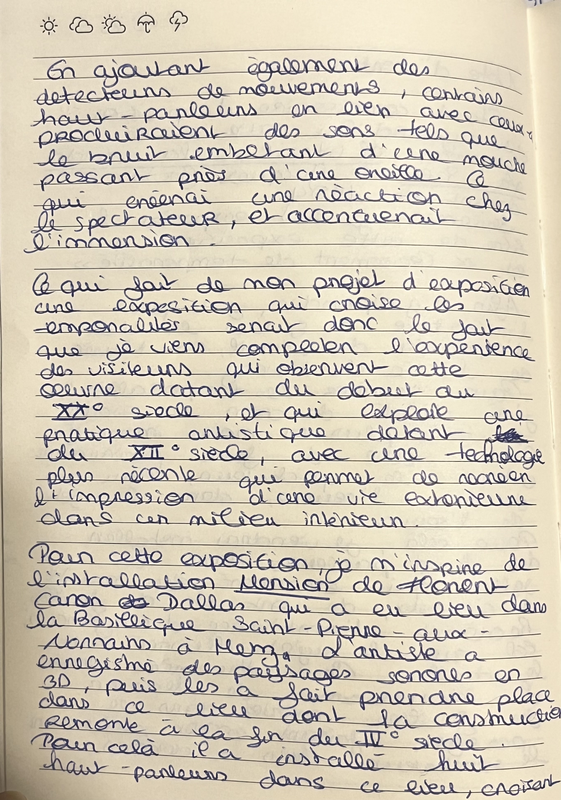 En ajoutant également des
détecteurs de mouvements, certains
haut-parleurs en lien avec ceux-
produiraient des sons tels que
le bruit embêtant d'une mouche
passant près d'une oreille. Ce
qui créerai une réaction chez
le spectateur, et accentuerait
l'immersion.
Ce qui fait de mon projet d'exposition
une exposition qui croise les
temporalités serait donc le fait
que je viens compléter l'expérience
des visiteurs qui observent cette
oeuvre datant du début du
XX° siècle, et qui explore une
pratique artistique datant
du XII° siècle, avec une technologie
plus récente qui permet de recréer
l'impression d'une vie extérieure
dans un milieu intérieur.
Pour cette exposition je m'inspire de
l'installation Mension de Florent
Caron Dallas qui a eu lieu dans
la Basilique Saint-Pierre-aux-
Nonnains à Metz. L'artiste a
enregistré des paysages sonores en
3D, puis les a fait prendre place
dans ce lieu dont la constructio
remonte à la fin du IV° siècle.
Pour celà il a installé huit
haut-parleurs dans ce lieu, croisant